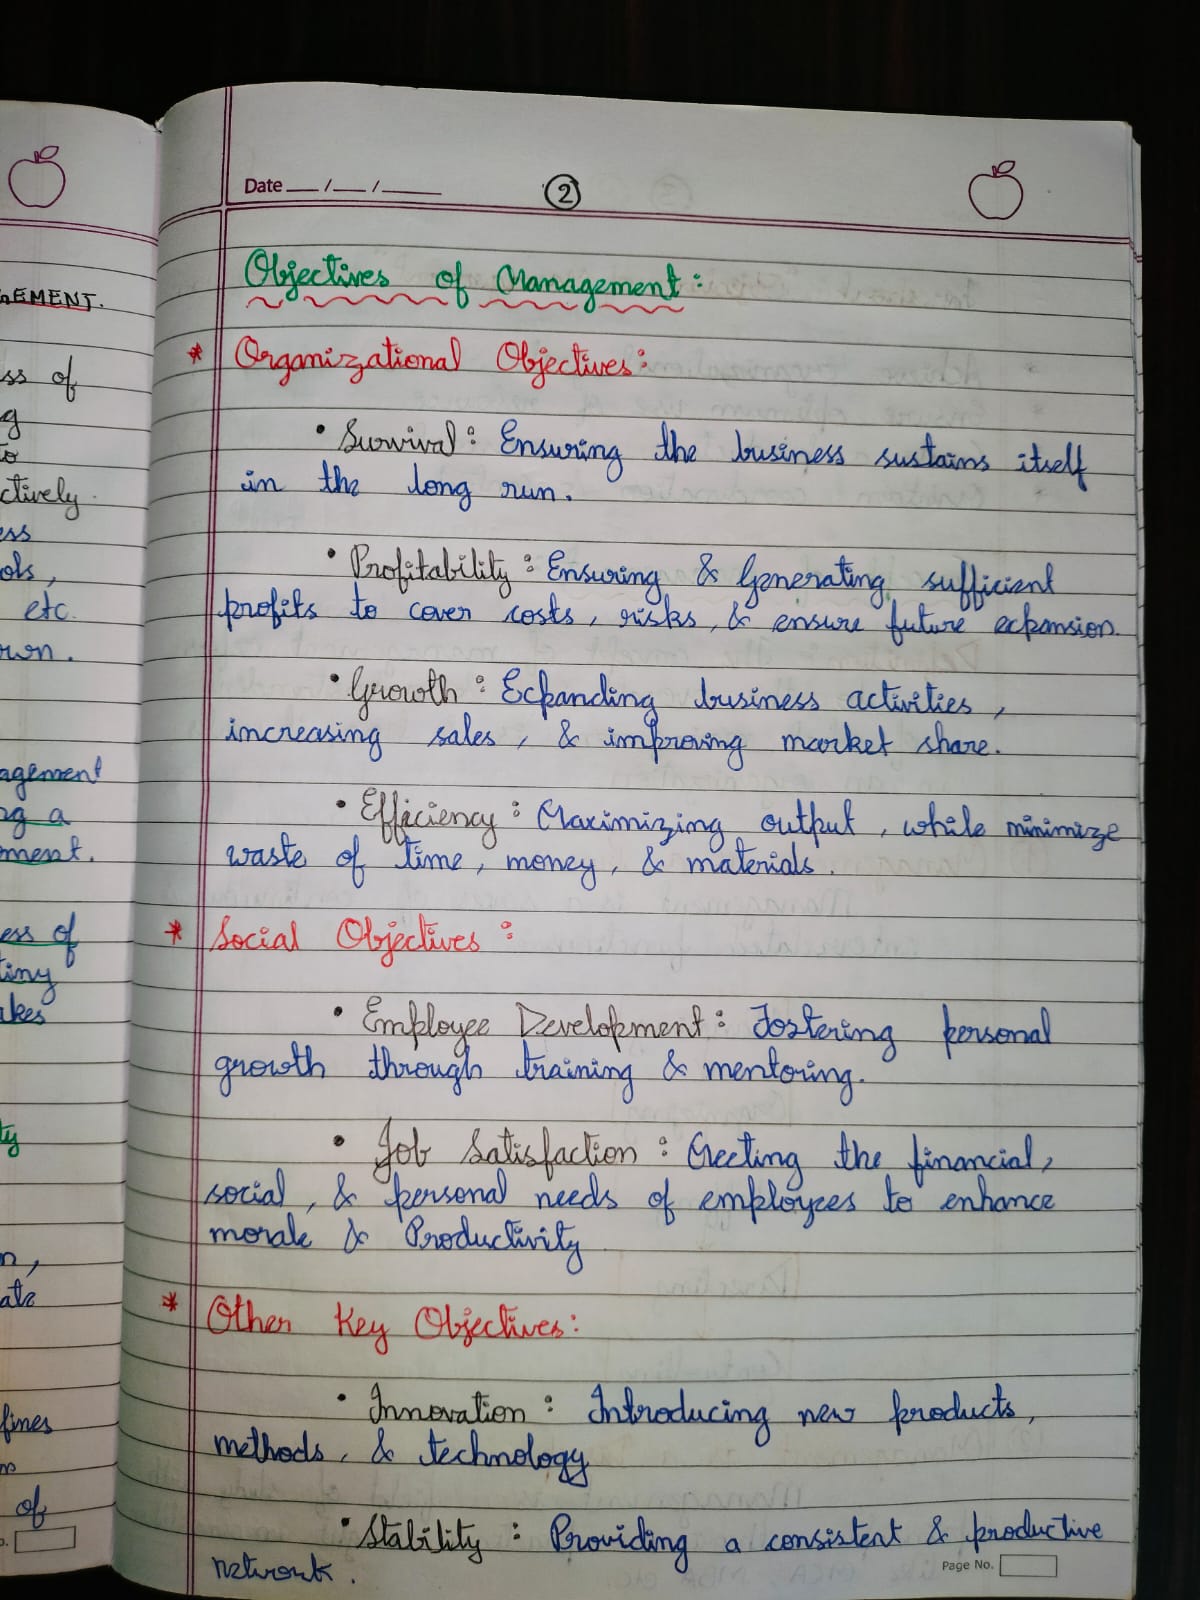 Date __/__/____
2
Objectives of Management:
* Organizational Objectives:
• Survival: Ensuring the business sustains itself
in the long run.
• Profitability: Ensuring & Generating sufficient
profits to cover costs, risks, & ensure future expansion.
• Growth: Expanding business activities,
increasing sales, & improving market share.
• Efficiency: Maximizing output, while minimize
waste of time, money, & materials.
* Social Objectives:
• Employee Development: Fostering personal
growth through training & mentoring.
• Job Satisfaction: Meeting the financial,
social, & personal needs of employees to enhance
morale & Productivity
* Other Key Objectives:
• Innovation: Introducing new products,
methods, & technology
• Stability: Providing a consistent & productive
network.
Page No.
EMENT.
ss of
g
to
ctively
ess
ols,
etc.
own.
agement
ng a
ment.
ess of
tiny
akes
ty
n,
ate
fines
of